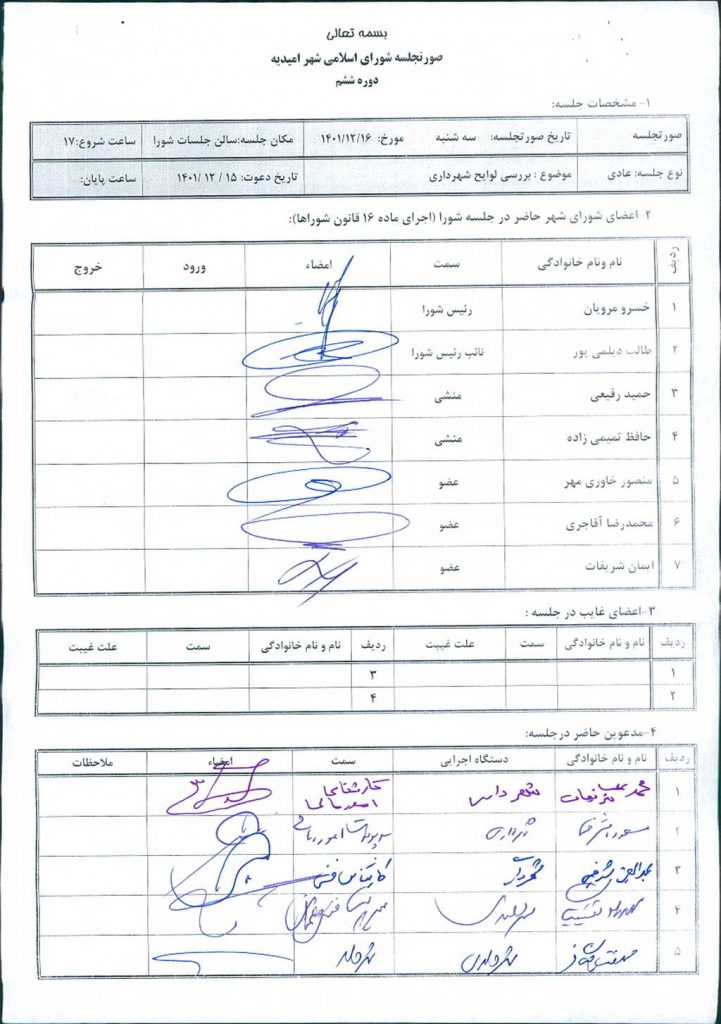 بسمه تعالی
صورتجلسه شورای اسلامی شهر امیدیه
دوره ششم
۱- مشخصات جلسه:
صورتجلسه تاریخ صورتجلسه: سه شنبه مورخ: ۱۴۰۱/۱۲/۱۶ مکان جلسه:سالن جلسات شورا ساعت شروع:۱۷
نوع جلسه: عادی موضوع : بررسی لوایح شهرداری تاریخ دعوت: ۱۵ / ۱۲ /۱۴۰۱ ساعت پایان:
۲- اعضای شورای شهر حاضر در جلسه شورا (اجرای ماده ۱۶ قانون شوراها):
ردیف نام ونام خانوادگی سمت امضاء ورود خروج
۱ خسرو مرویان رئیس شورا
۲ طالب دیلمی پور نائب رئیس شورا
۳ حمید رفیعی منشی
۴ حافظ تمیمی زاده منشی
۵ منصور خاوری مهر عضو
۶ محمدرضا آقاجری عضو
۷ ایمان شریفات عضو
۳-اعضای غایب در جلسه :
ردیف نام و نام خانوادگی سمت علت غیبت ردیف نام و نام خانوادگی سمت علت غیبت
۱ ۳
۲ ۴
۴-مدعوین حاضر درجلسه:
ردیف نام و نام خانوادگی دستگاه اجرایی سمت امضاء ملاحظات
۱ شهرداری
۲ شهرداری
۳ شهرداری کارشناس فنی
۴ شهرداری
۵ شهرداری شهردار